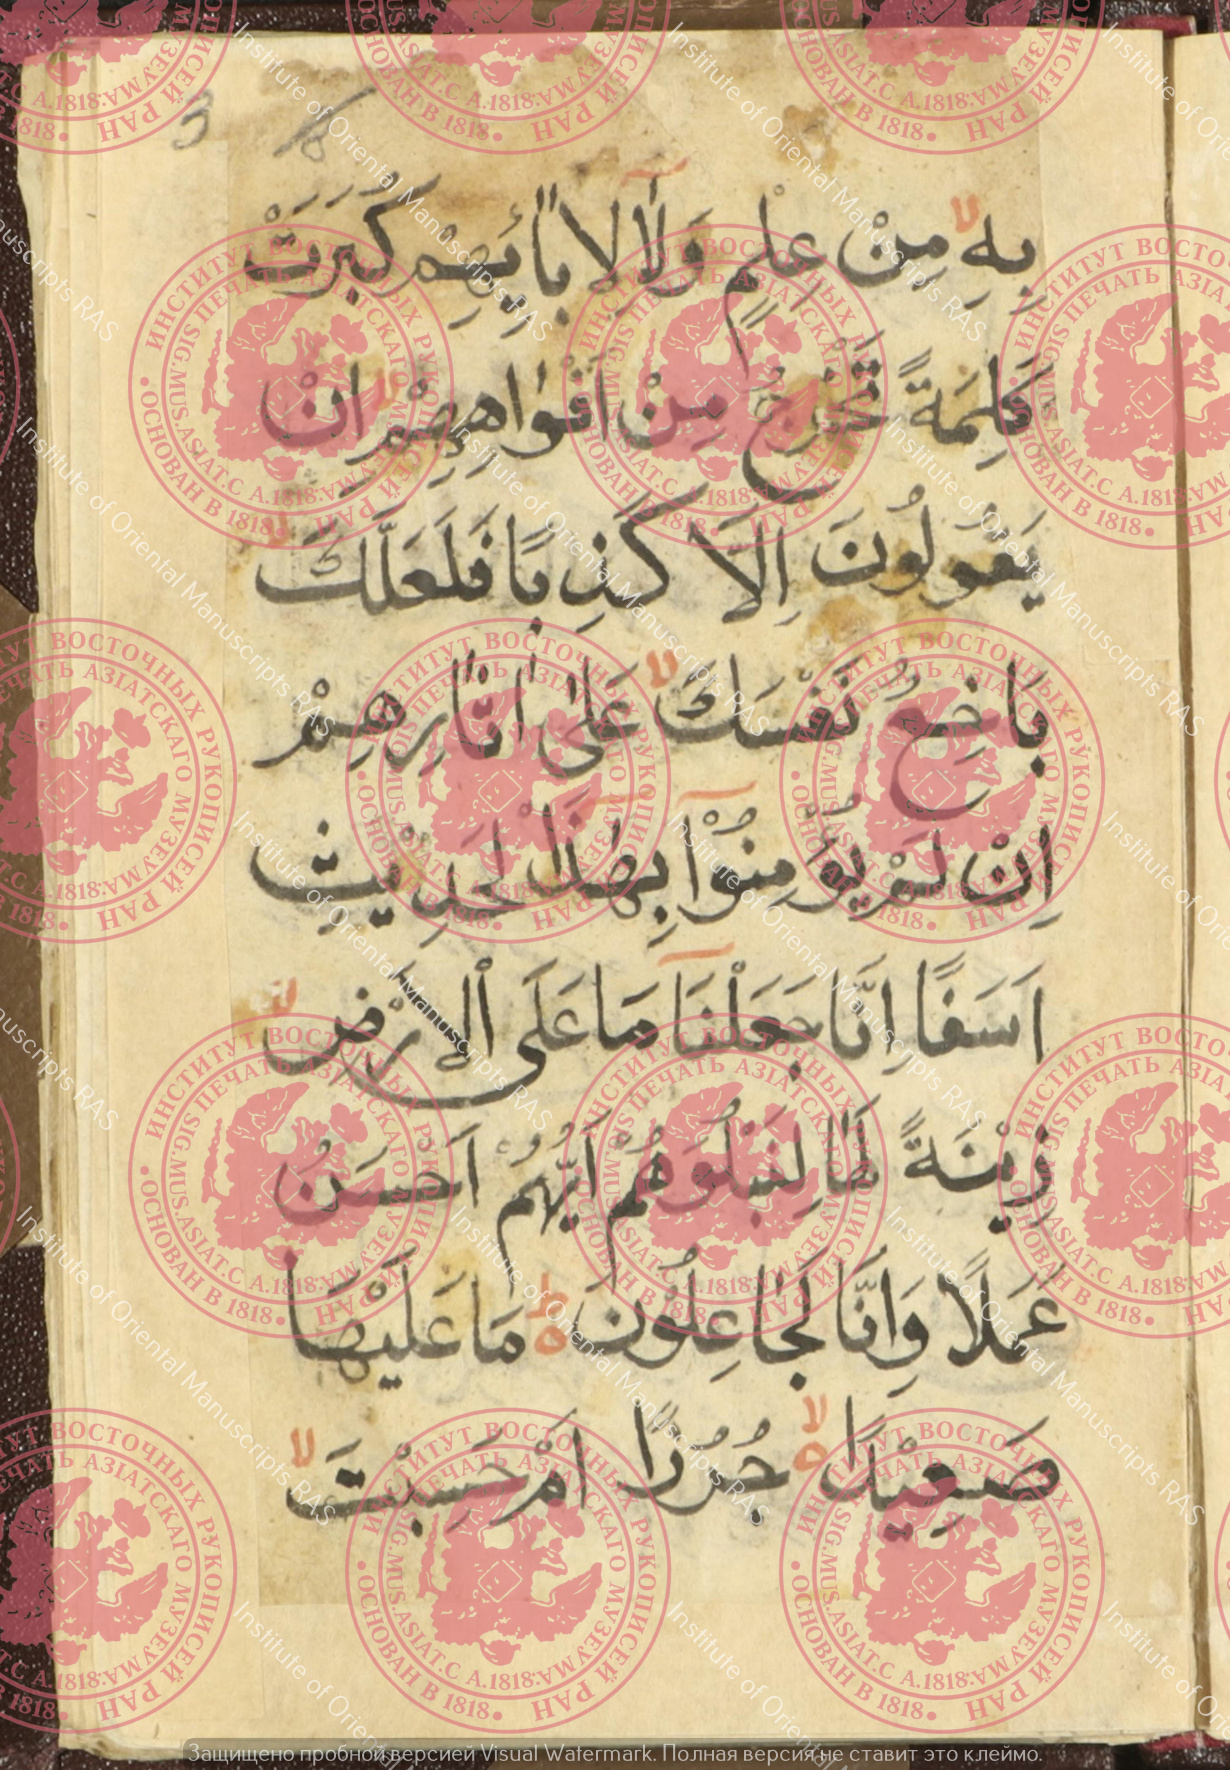 3 6
بِهِ مِنْ عِلْمٍ وَلَا لِاٰبَائِهِمْ كَبُرَتْ
كَلِمَةً تَخْرُجُ مِنْ اَفْوَاهِهِمْ اِنْ
يَقُولُونَ اِلَّا كَذِبًا فَلَعَلَّكَ
بَاخِعٌ نَفْسَكَ عَلٰى اٰثَارِهِمْ
اِنْ لَمْ يُؤْمِنُوْا بِهٰذَا الْحَدِيْثِ
اَسَفًا اِنَّا جَعَلْنَا مَا عَلَى الْاَرْضِ
زِيْنَةً لَهَا لِنَبْلُوَهُمْ اَيُّهُمْ اَحْسَنُ
عَمَلًا وَاِنَّا لَجَاعِلُوْنَ مَا عَلَيْهَا
صَعِيْدًا جُرُزًا اَمْ حَسِبْتَ
ИНСТИТУТ ВОСТОЧНЫХ РУКОПИСЕЙ РАН • ОСНОВАН В 1818 •
SIG.MUS.ASIAT.C A.1818: ПЕЧАТЬ АЗІАТСКАГО МУЗЕУМА
Institute of Oriental Manuscripts RAS
Защищено пробной версией Visual Watermark. Полная версия не ставит это клеймо.